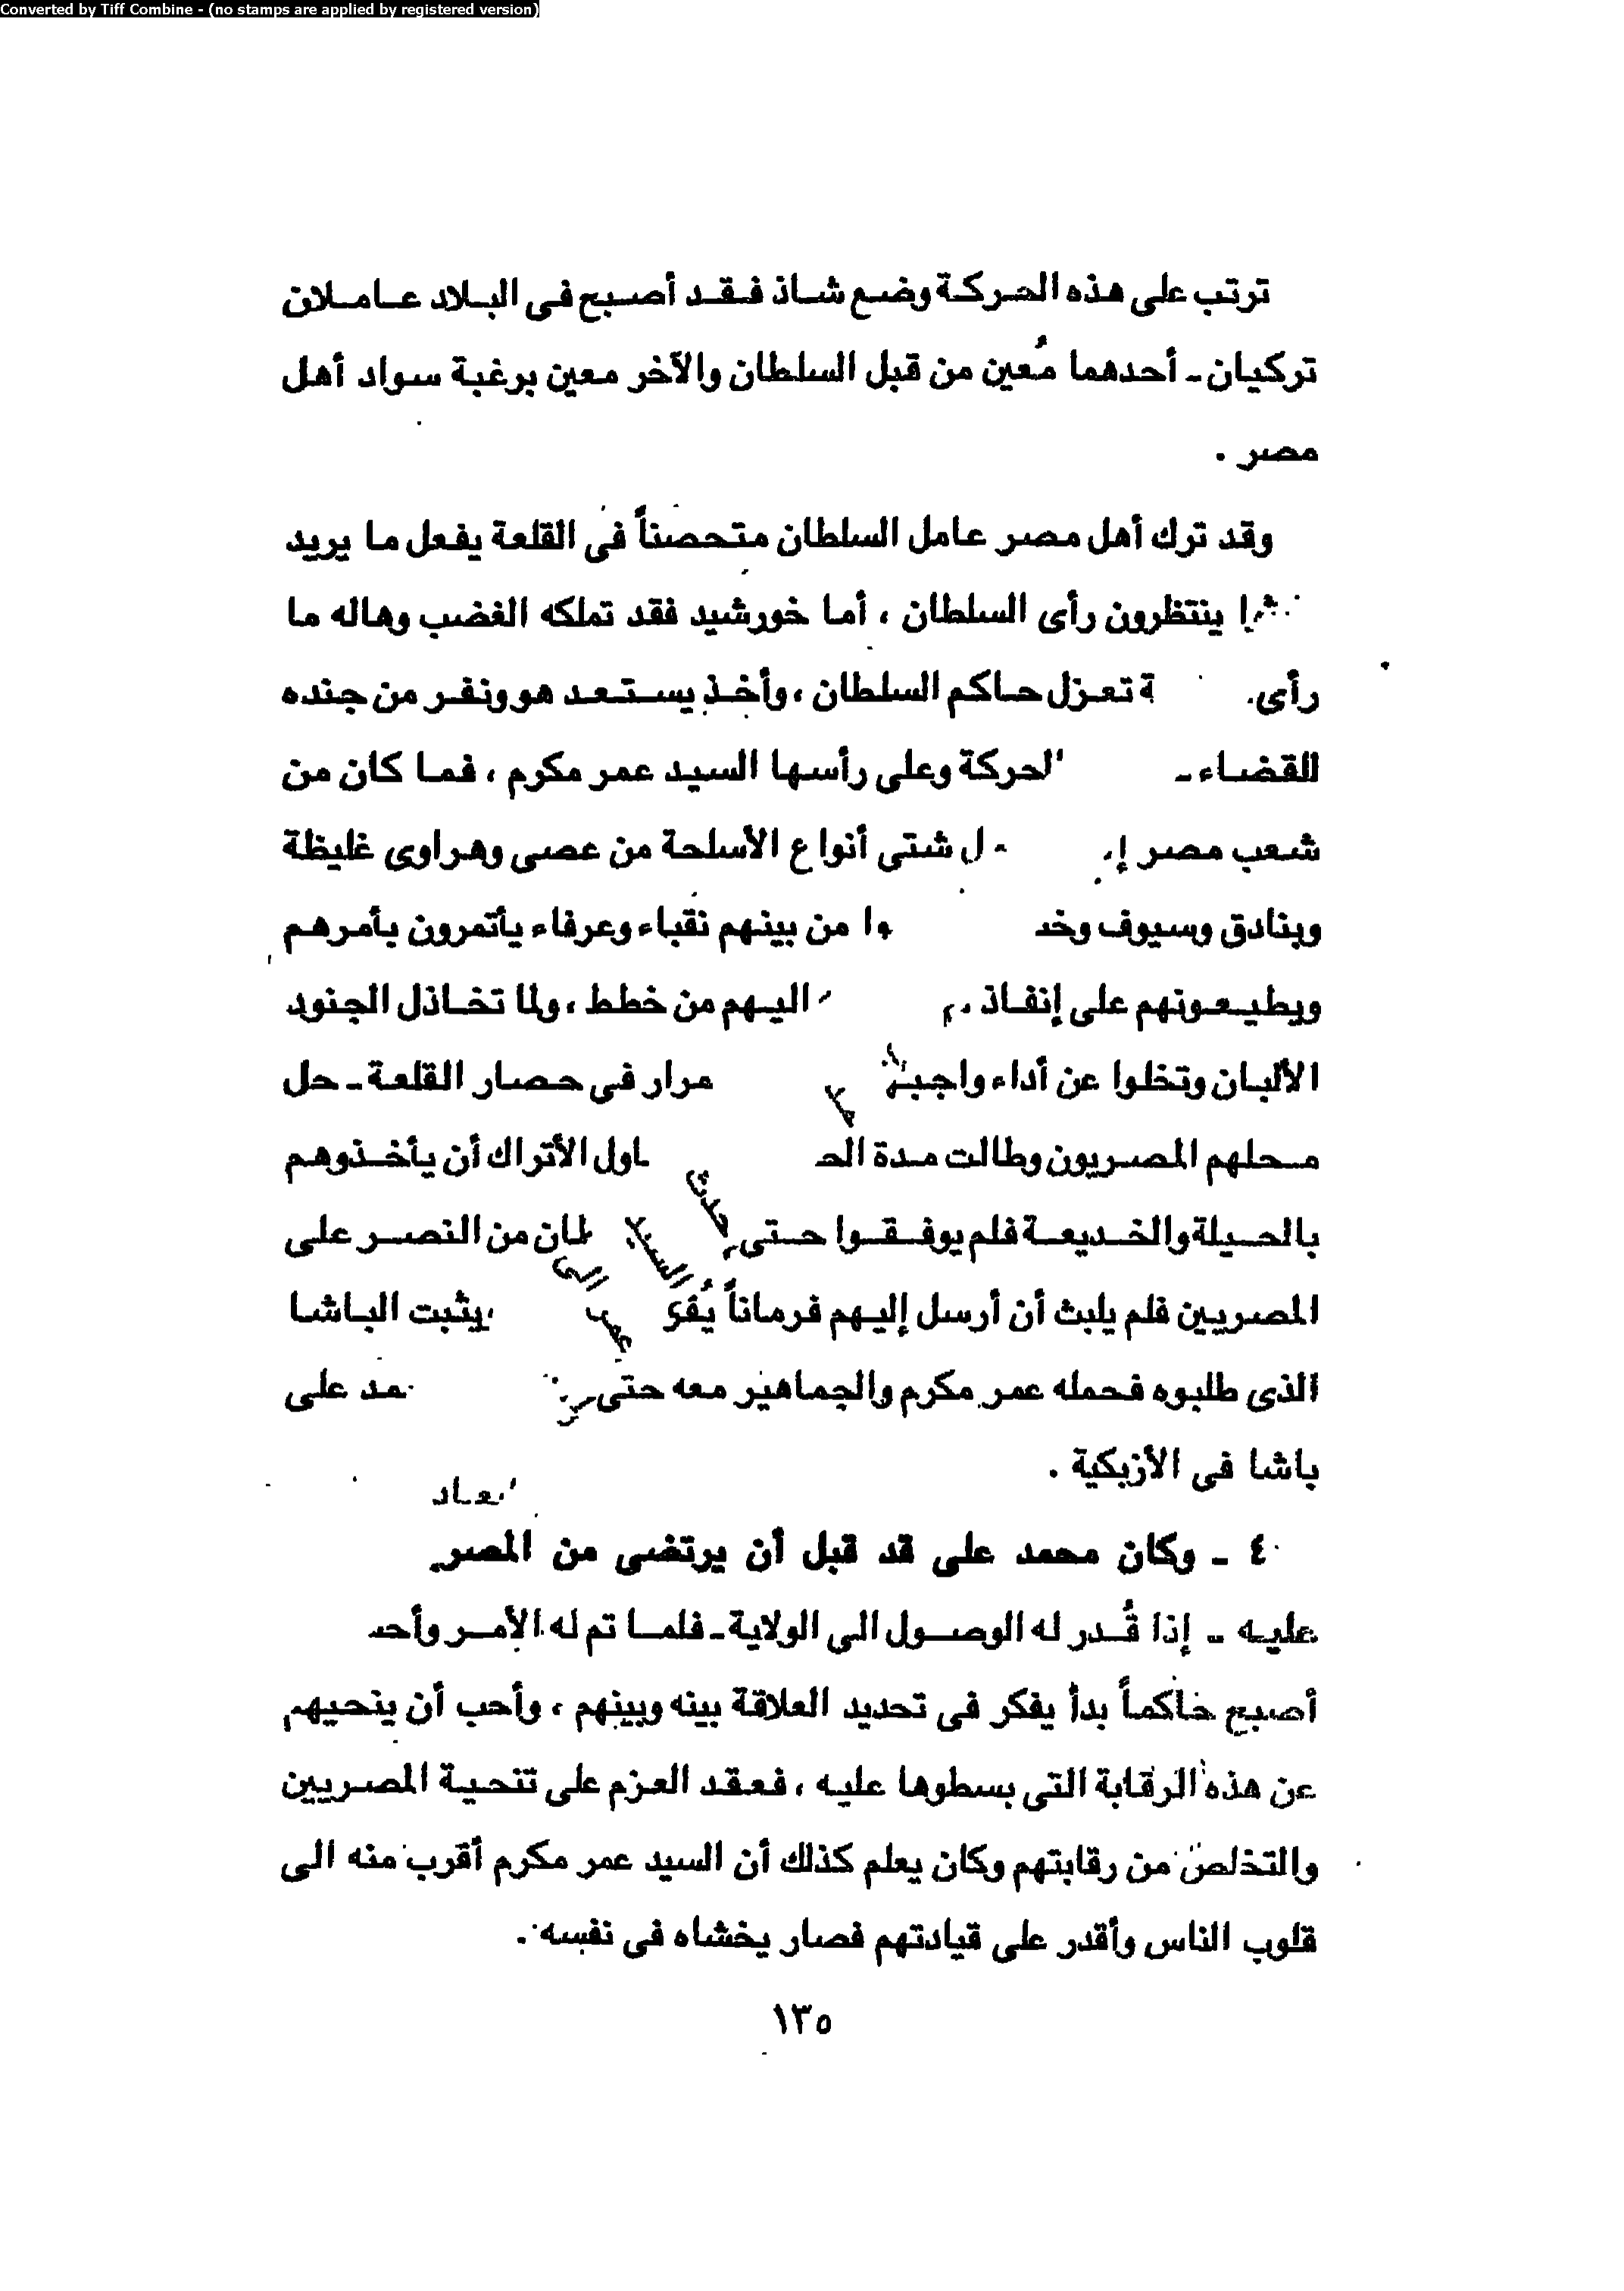 Converted by Tiff Combine - (no stamps are applied by registered version)
ترتب على هذه الحركة وضع شاذ فقد أصبح فى البلاد عاملان
تركيان - أحدهما مُعين من قبل السلطان والآخر معين برغبة سواد أهل
مصر .
وقد ترك أهل مصر عامل السلطان متحصناً فى القلعة يفعل ما يريد
ينتظرون رأى السلطان ، أما خورشيد فقد تملكه الغضب وهاله ما
رأى تعزل حاكم السلطان ، وأخذ يستعد هو ونفر من جنده
القضاء - الحركة وعلى رأسها السيد عمر مكرم ، فما كان من
شعب مصر شتى أنواع الأسلحة من عصى وهراوى غليظة
وبنادق وسيوف من بينهم نقباء وعرفاء يأتمرون بأمرهم
ويطيعونهم على إنفاذ اليهم من خطط ، ولما تخاذل الجنود
الألبان وتخلوا عن أداء مرار فى حصار القلعة - حل
محلهم المصريون وطالت مدة الأتراك أن يأخذوهم
بالحيلة والخديعة فلم يوفقوا حتى من النصر على
المصريين فلم يلبث أن أرسل إليهم فرماناً الباشا
الذى طلبوه فحمله عمر مكرم والجماهير معه حتى على
باشا فى الأزبكية .
٤ - وكان محمد على قد قبل أن يرتضى من
عليه - إذا قُدر له الوصول الى الولاية - فلما تم له الأمر
أصبح حاكماً بدأ يفكر فى تحديد العلاقة بينه وبينهم ، وأحب أن ينحيهم
عن هذه الرقابة التى بسطوها عليه ، فعقد العزم على تنحية المصريين
والتخلص من رقابتهم وكان يعلم كذلك أن السيد عمر مكرم أقرب منه الى
قلوب الناس وأقدر على قيادتهم فصار يخشاه فى نفسه .
١٣٥